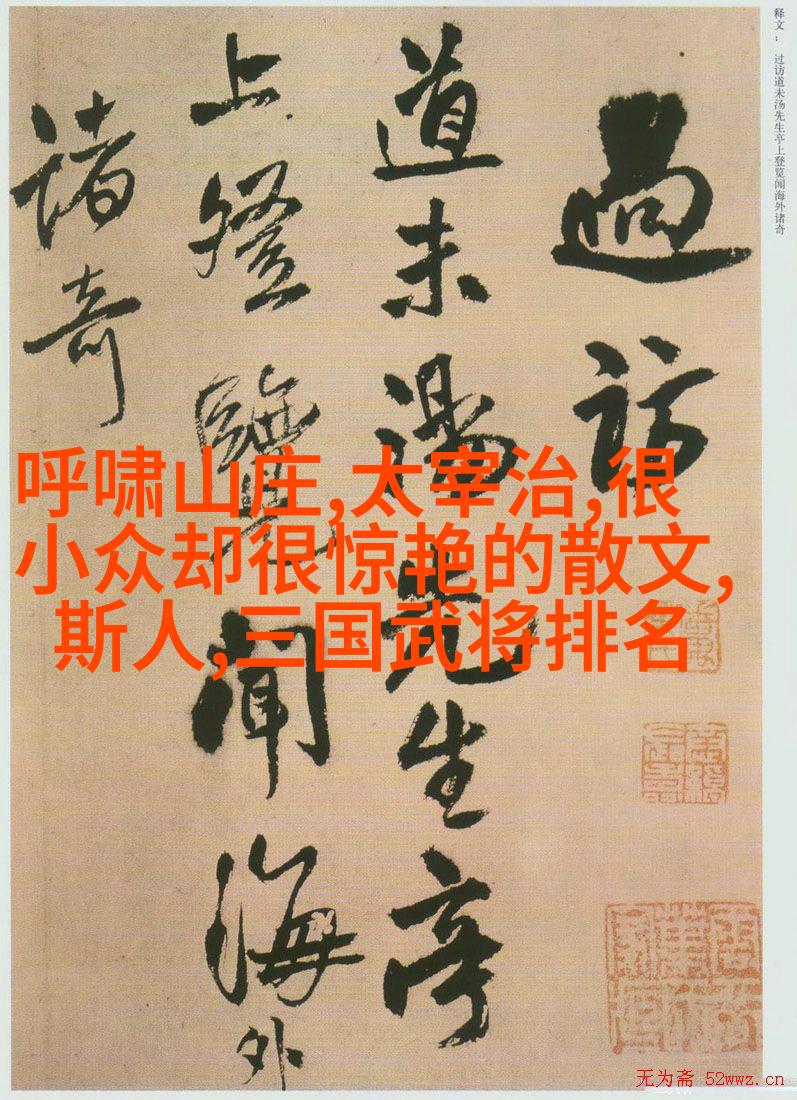 释文： 过访道未汤先生亭上登览闻海外诸奇
過訪
道未湯先生亭
上登覽聞海外
諸奇
呼啸山庄,太宰治,很
小众却很惊艳的散文,
斯人,三国武将排名
无为斋 52wwz.cn